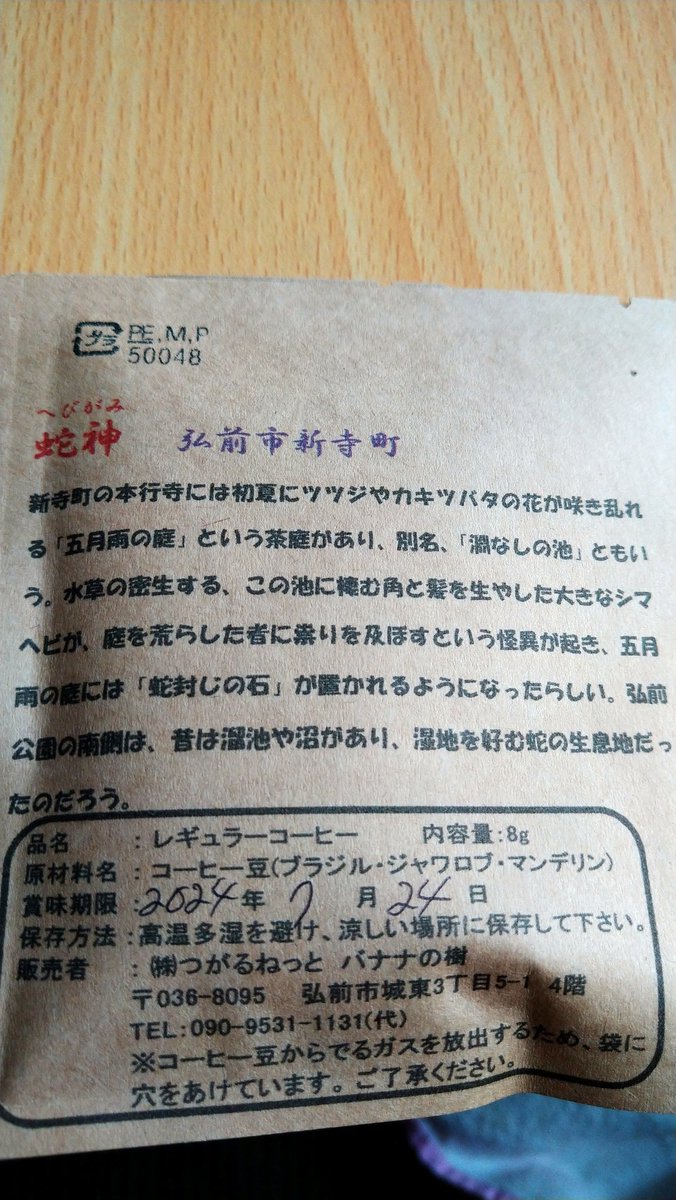 プラ PE.M.P
50048
へびがみ
蛇神 弘前市新寺町
新寺町の本行寺には初夏にツツジやカキツバタの花が咲き乱れ
る「五月雨の庭」という茶庭があり、別名、「澗なしの池」ともい
う。水草の密生する、この池に棲む角と髪を生やした大きなシマ
ヘビが、庭を荒らした者に祟りを及ぼすという怪異が起き、五月
雨の庭には「蛇封じの石」が置かれるようになったらしい。弘前
公園の南側は、昔は溜池や沼があり、湿地を好む蛇の生息地だっ
たのだろう。
品名 :レギュラーコーヒー 内容量:8g
原材料名 :コーヒー豆(ブラジル・ジャワロブ・マンデリン)
賞味期限 :2024年 7月 24日
保存方法 :高温多湿を避け、涼しい場所に保存して下さい。
販売者 :㈱つがるねっと バナナの樹
〒036-8095 弘前市城東3丁目5-1 4階
TEL:090-9531-1131(代)
※コーヒー豆からでるガスを放出するため、袋に
穴をあけています。ご了承ください。